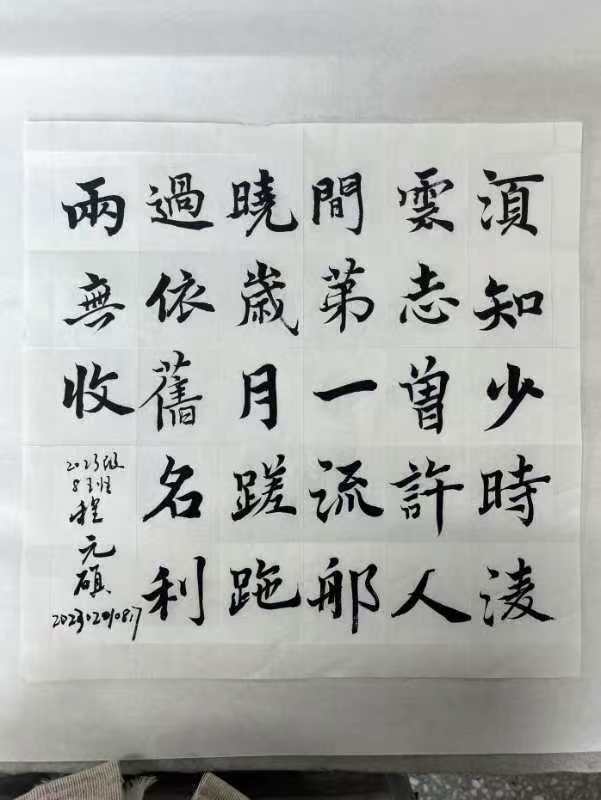 湏知少時淩
雲志曾許人
間苐一流郍
曉歲月蹉跎
過依舊名利
兩無收
2023级
8班
程
元
硕